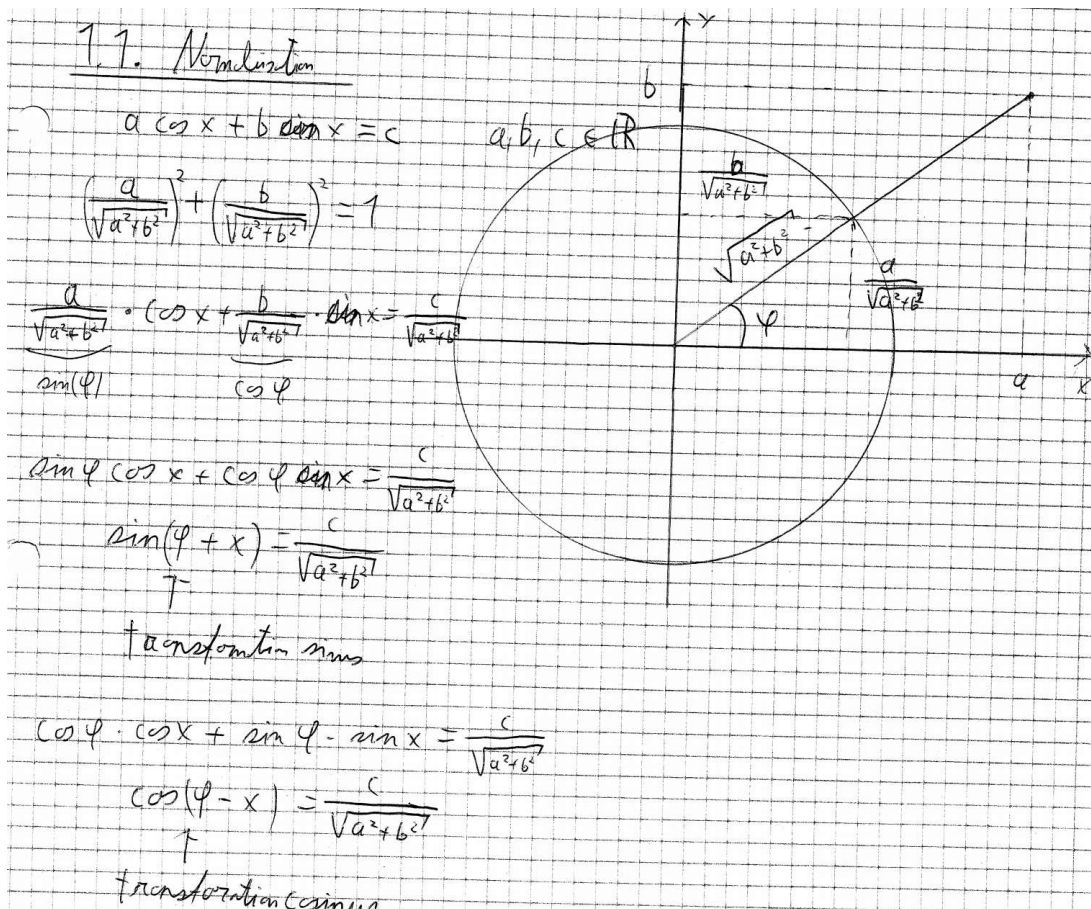 1.1. Normalization
a cos x + b sin x = c    a, b, c ∈ ℝ
(a/√(a²+b²))² + (b/√(a²+b²))² = 1
a/√(a²+b²) · cos x + b/√(a²+b²) · sin x = c/√(a²+b²)
sin(φ)    cos φ
sin φ cos x + cos φ sin x = c/√(a²+b²)
sin(φ + x) = c/√(a²+b²)
↑
transformation sinus
cos φ · cos x + sin φ · sin x = c/√(a²+b²)
cos(φ - x) = c/√(a²+b²)
↑
transforation cosinus
Y
b
b/√(a²+b²)
√(a²+b²)
a/√(a²+b²)
φ
a
X